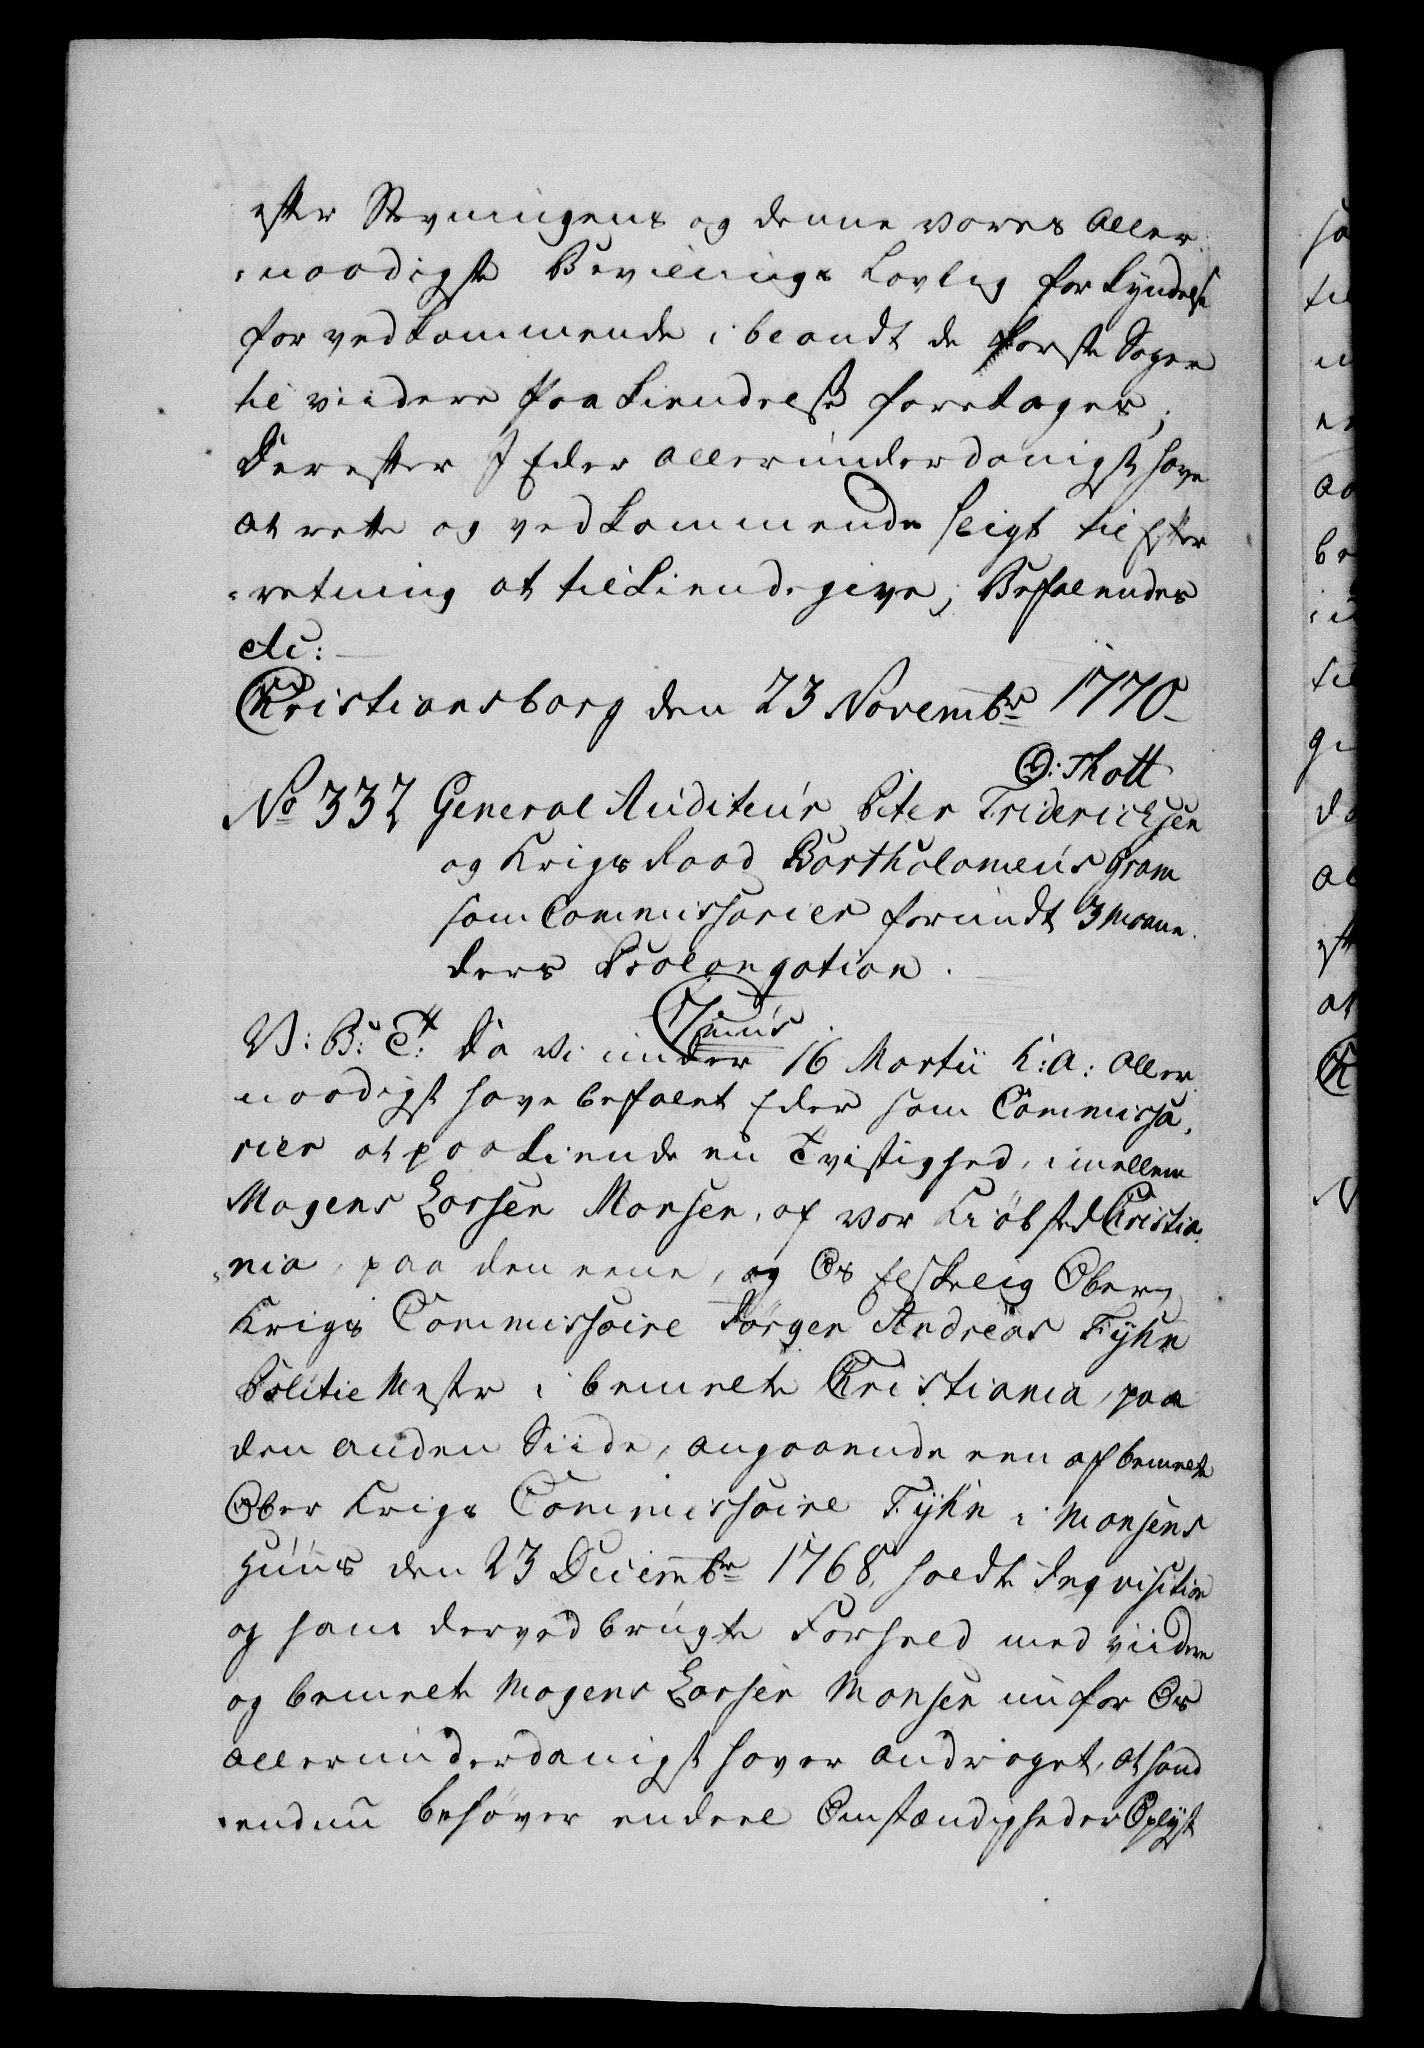 efter Stevningens og denne vores Aller,
naadigste Bevilnings Lovlig forkyndelse
for vedkommende i beandt de første Sager
til viidere Paakiendelse foretages,
Derefter I Eder Allerunderdanigst have
at rette og vedkommende sligt til Efter,
retning at tilkiendegive; Befalendes
etc:
Christiansborg den 23 Novembr 1770
O: Thott
No 332 General Auditeur Peter Friderichsen
og Krigs Raad Bartholomeus Gram
som Commissarier forundt 3 Maane,
ders Prolongation.
V: B: T: Da Vi under 16 Martii h: a: Aller
naadigst have befalet Eder som Commissa,
rier at paakiende en Tvistighed, imellem
Mogens Larsen Monsen, af vor Kiöbsted Christia,
nia, paa den eene, og Os Elskelig Ober,
Krigs Commissaire Jörgen Andreas Fyhn
Politie Mester i bemelte Christiania, paa
den anden Siide, angaaende een af bemelte
Ober Krigs Commissaire Fyhn i Monsens
Huus den 23 Decembr 1768, holdte Inqvisition
og hans derved brugte Forhold med viidere
og bemelte Mogens Larsen Monsen nu for Os
allerunderdanigst haver andraget, at hand
endnu behøver endeel Omstændigheder Oplyst